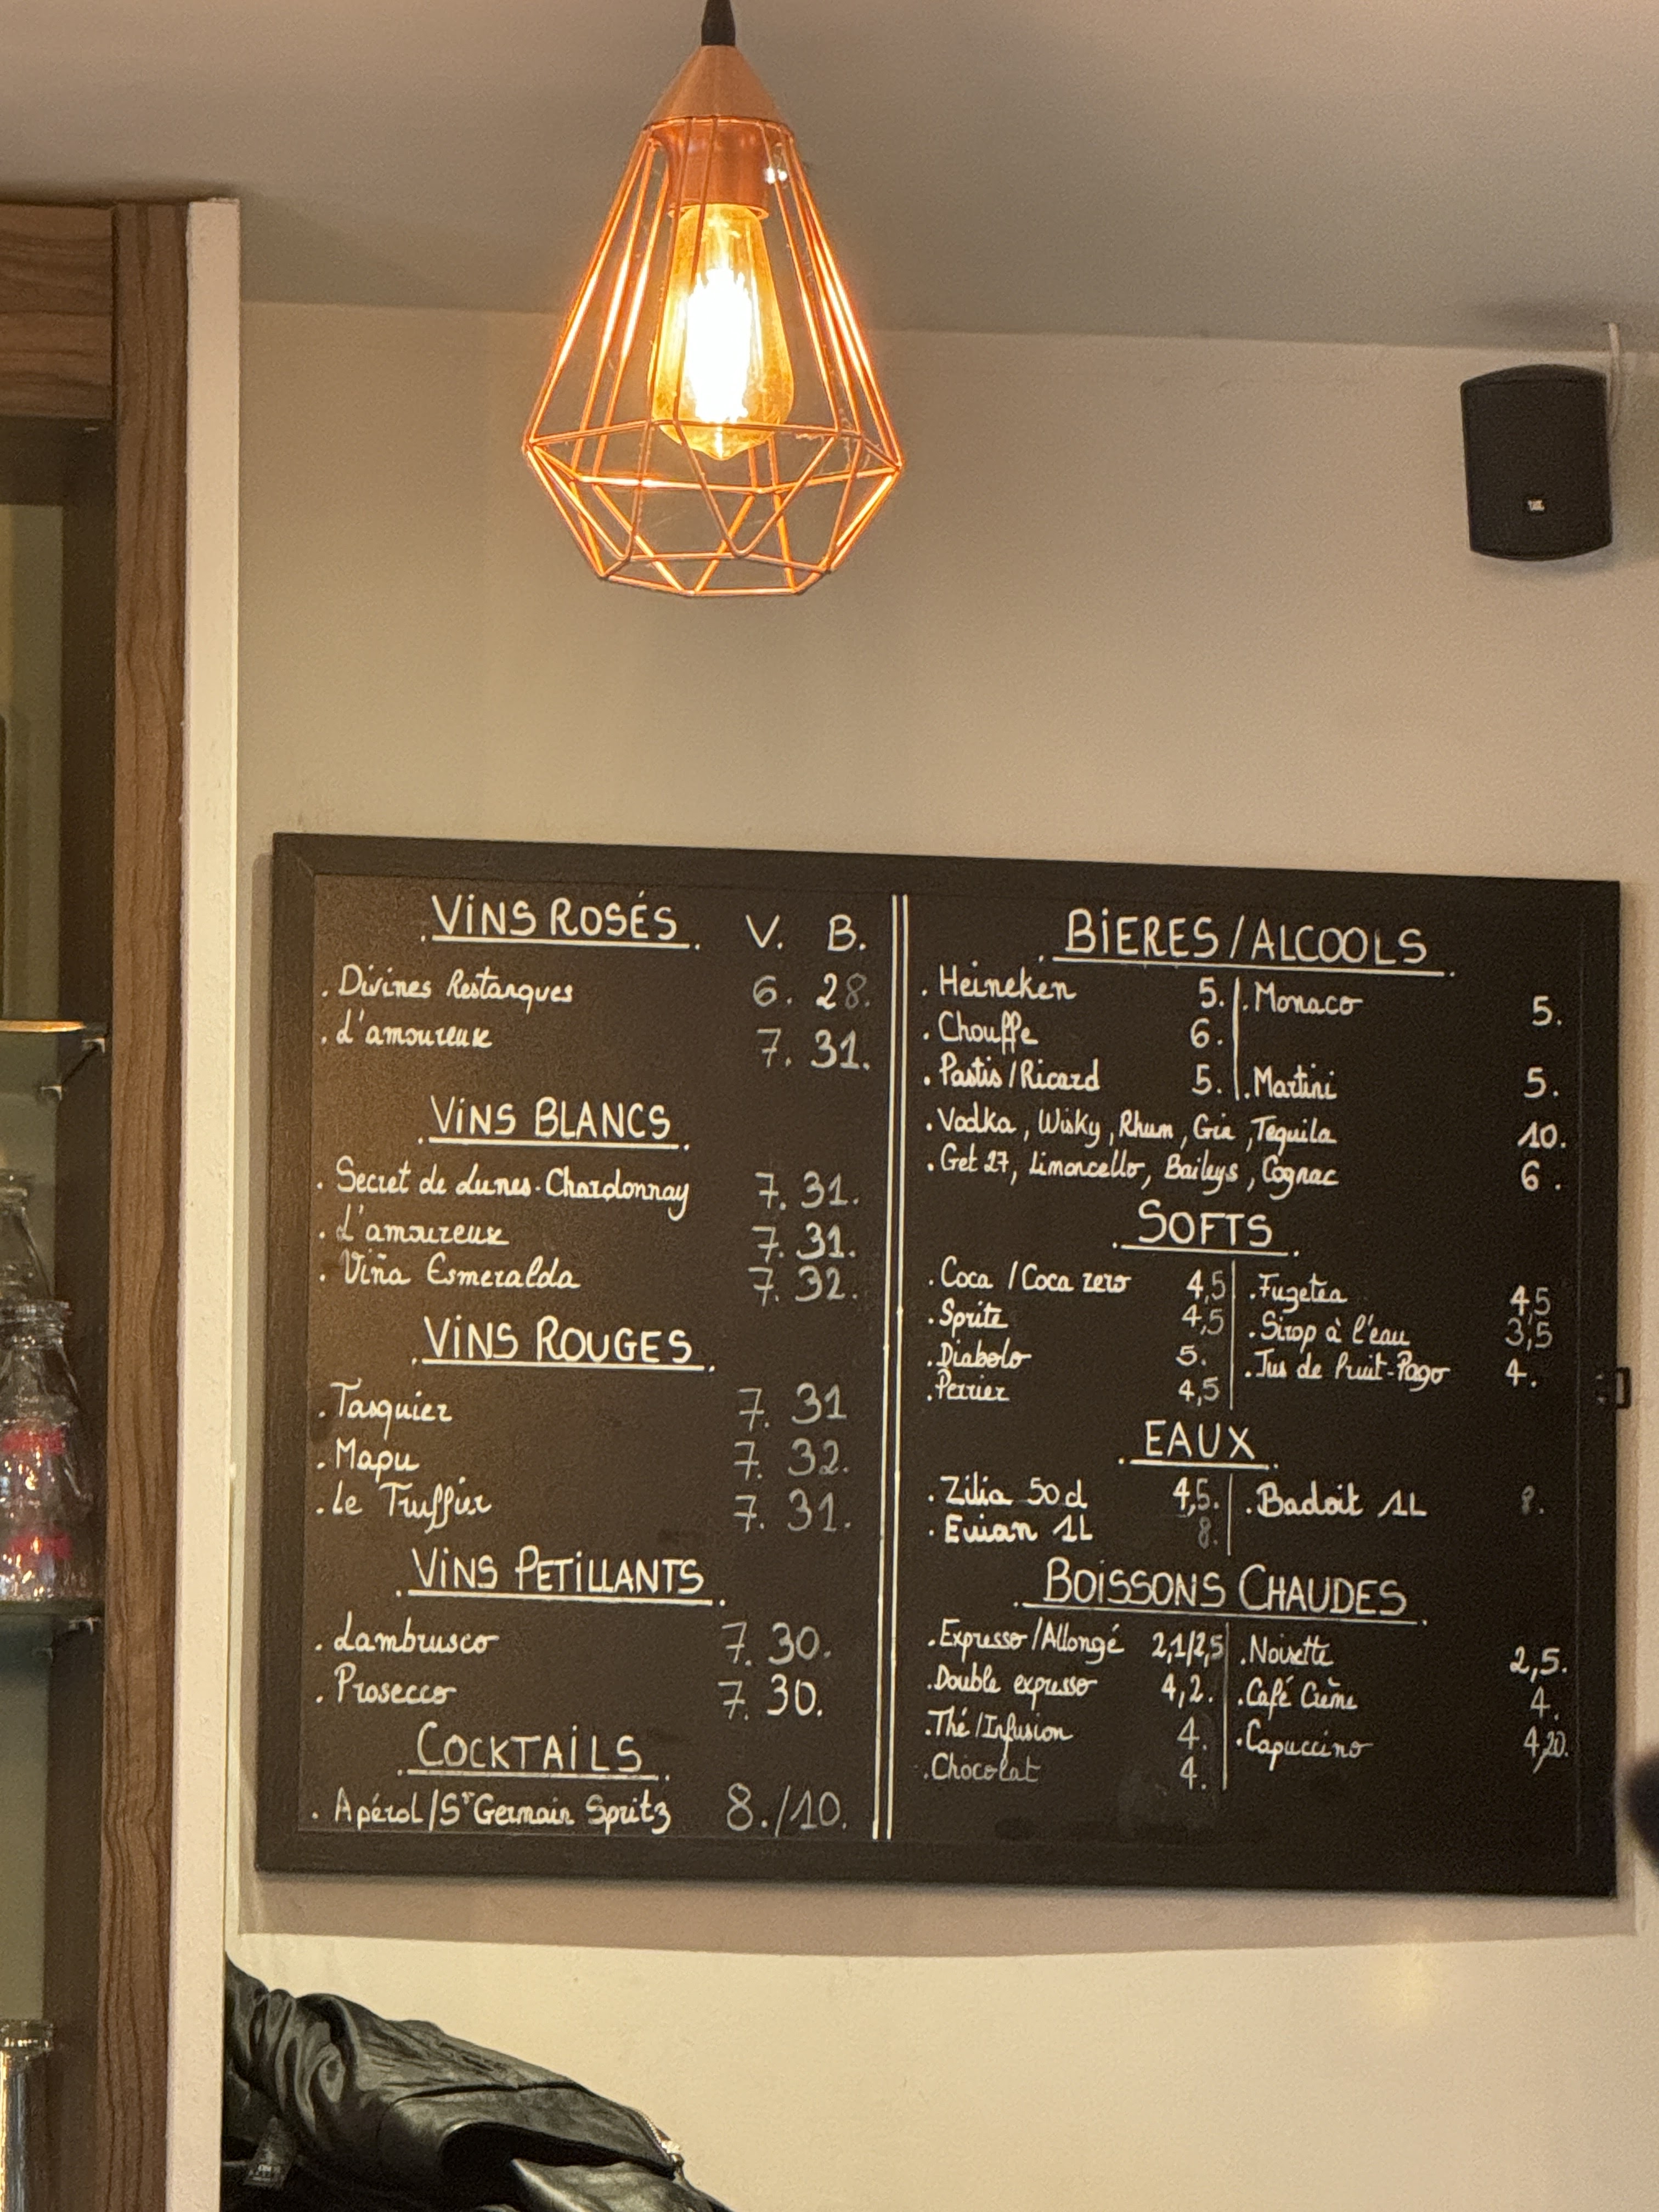 VINS ROSÉS V. B.
. Divines Restanques 6. 28.
. L'amoureuse 7. 31.
VINS BLANCS
. Secret de Lunes-Chardonnay 7. 31.
. L'amoureuse 7. 31.
. Viña Esmeralda 7. 32.
VINS ROUGES
. Tasquier 7. 31
. Mapu 7. 32.
. Le Truffier 7. 31.
VINS PETILLANTS
. Lambrusco 7. 30.
. Prosecco 7. 30.
COCKTAILS
. Apérol/St Germain Spritz 8./10.
BIERES/ALCOOLS
. Heineken 5. . Monaco 5.
. Chouffe 6.
. Pastis/Ricard 5. . Martini 5.
. Vodka, Wisky, Rhum, Gin, Tequila 10.
. Get 27, Limoncello, Baileys, Cognac 6.
SOFTS
. Coca / Coca zero 4,5 . Fuzetea 4,5
. Sprite 4,5 . Sirop à l'eau 3,5
. Diabolo 5. . Jus de fruit-Pago 4.
. Perrier 4,5
EAUX
. Zilia 50cl 4,5. . Badoit 1L 8.
. Evian 1L 8.
BOISSONS CHAUDES
. Expresso/Allongé 2,1/2,5 . Noisette 2,5.
. Double expresso 4,2. . Café Crème 4.
. Thé/Infusion 4. . Capuccino 4,20.
. Chocolat 4.
JBL